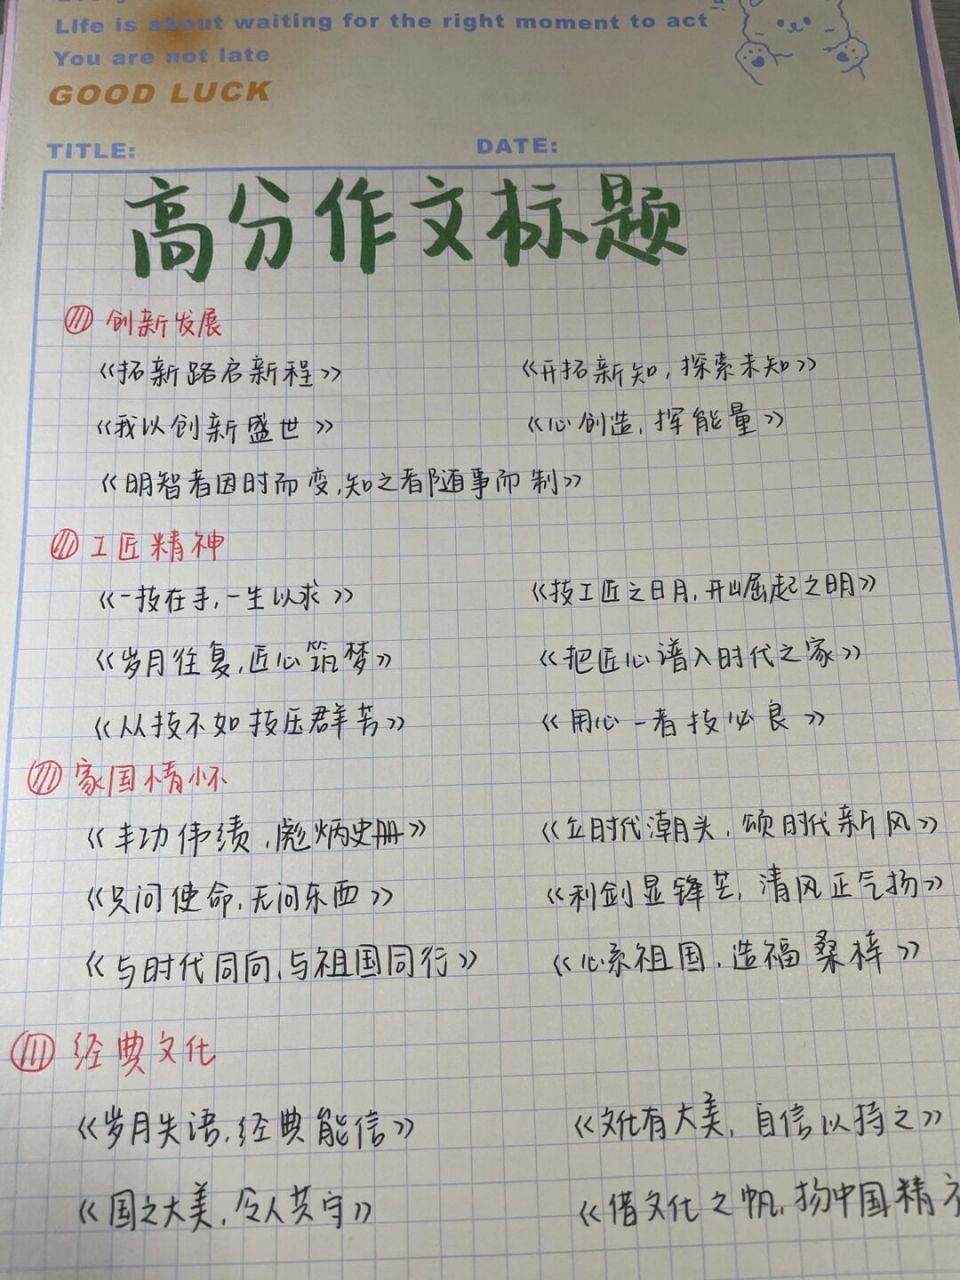 Life is about waiting for the right moment to act
You are not late
GOOD LUCK
TITLE: DATE:
高分作文标题
创新发展
《拓新路启新程》 《开拓新知,探索未知》
《我以创新盛世》 《心创造,挥能量》
《明智者因时而变,知之者随事而制》
工匠精神
《一技在手,一生以求》 《技工匠之日月,开山屈起之明》
《岁月往复,匠心筑梦》 《把匠心谱入时代之家》
《从技不如技压群芳》 《用心一者技必良》
家国情怀
《丰功伟绩,彪炳史册》 《立时代潮头,颂时代新风》
《只问使命,无问东西》 《利剑显锋芒,清风正气扬》
《与时代同向,与祖国同行》 《心系祖国,造福桑梓》
经典文化
《岁月失语,经典能信》 《文化有大美,自信以持之》
《国之大美,令人共守》 《借文化之帆,扬中国精